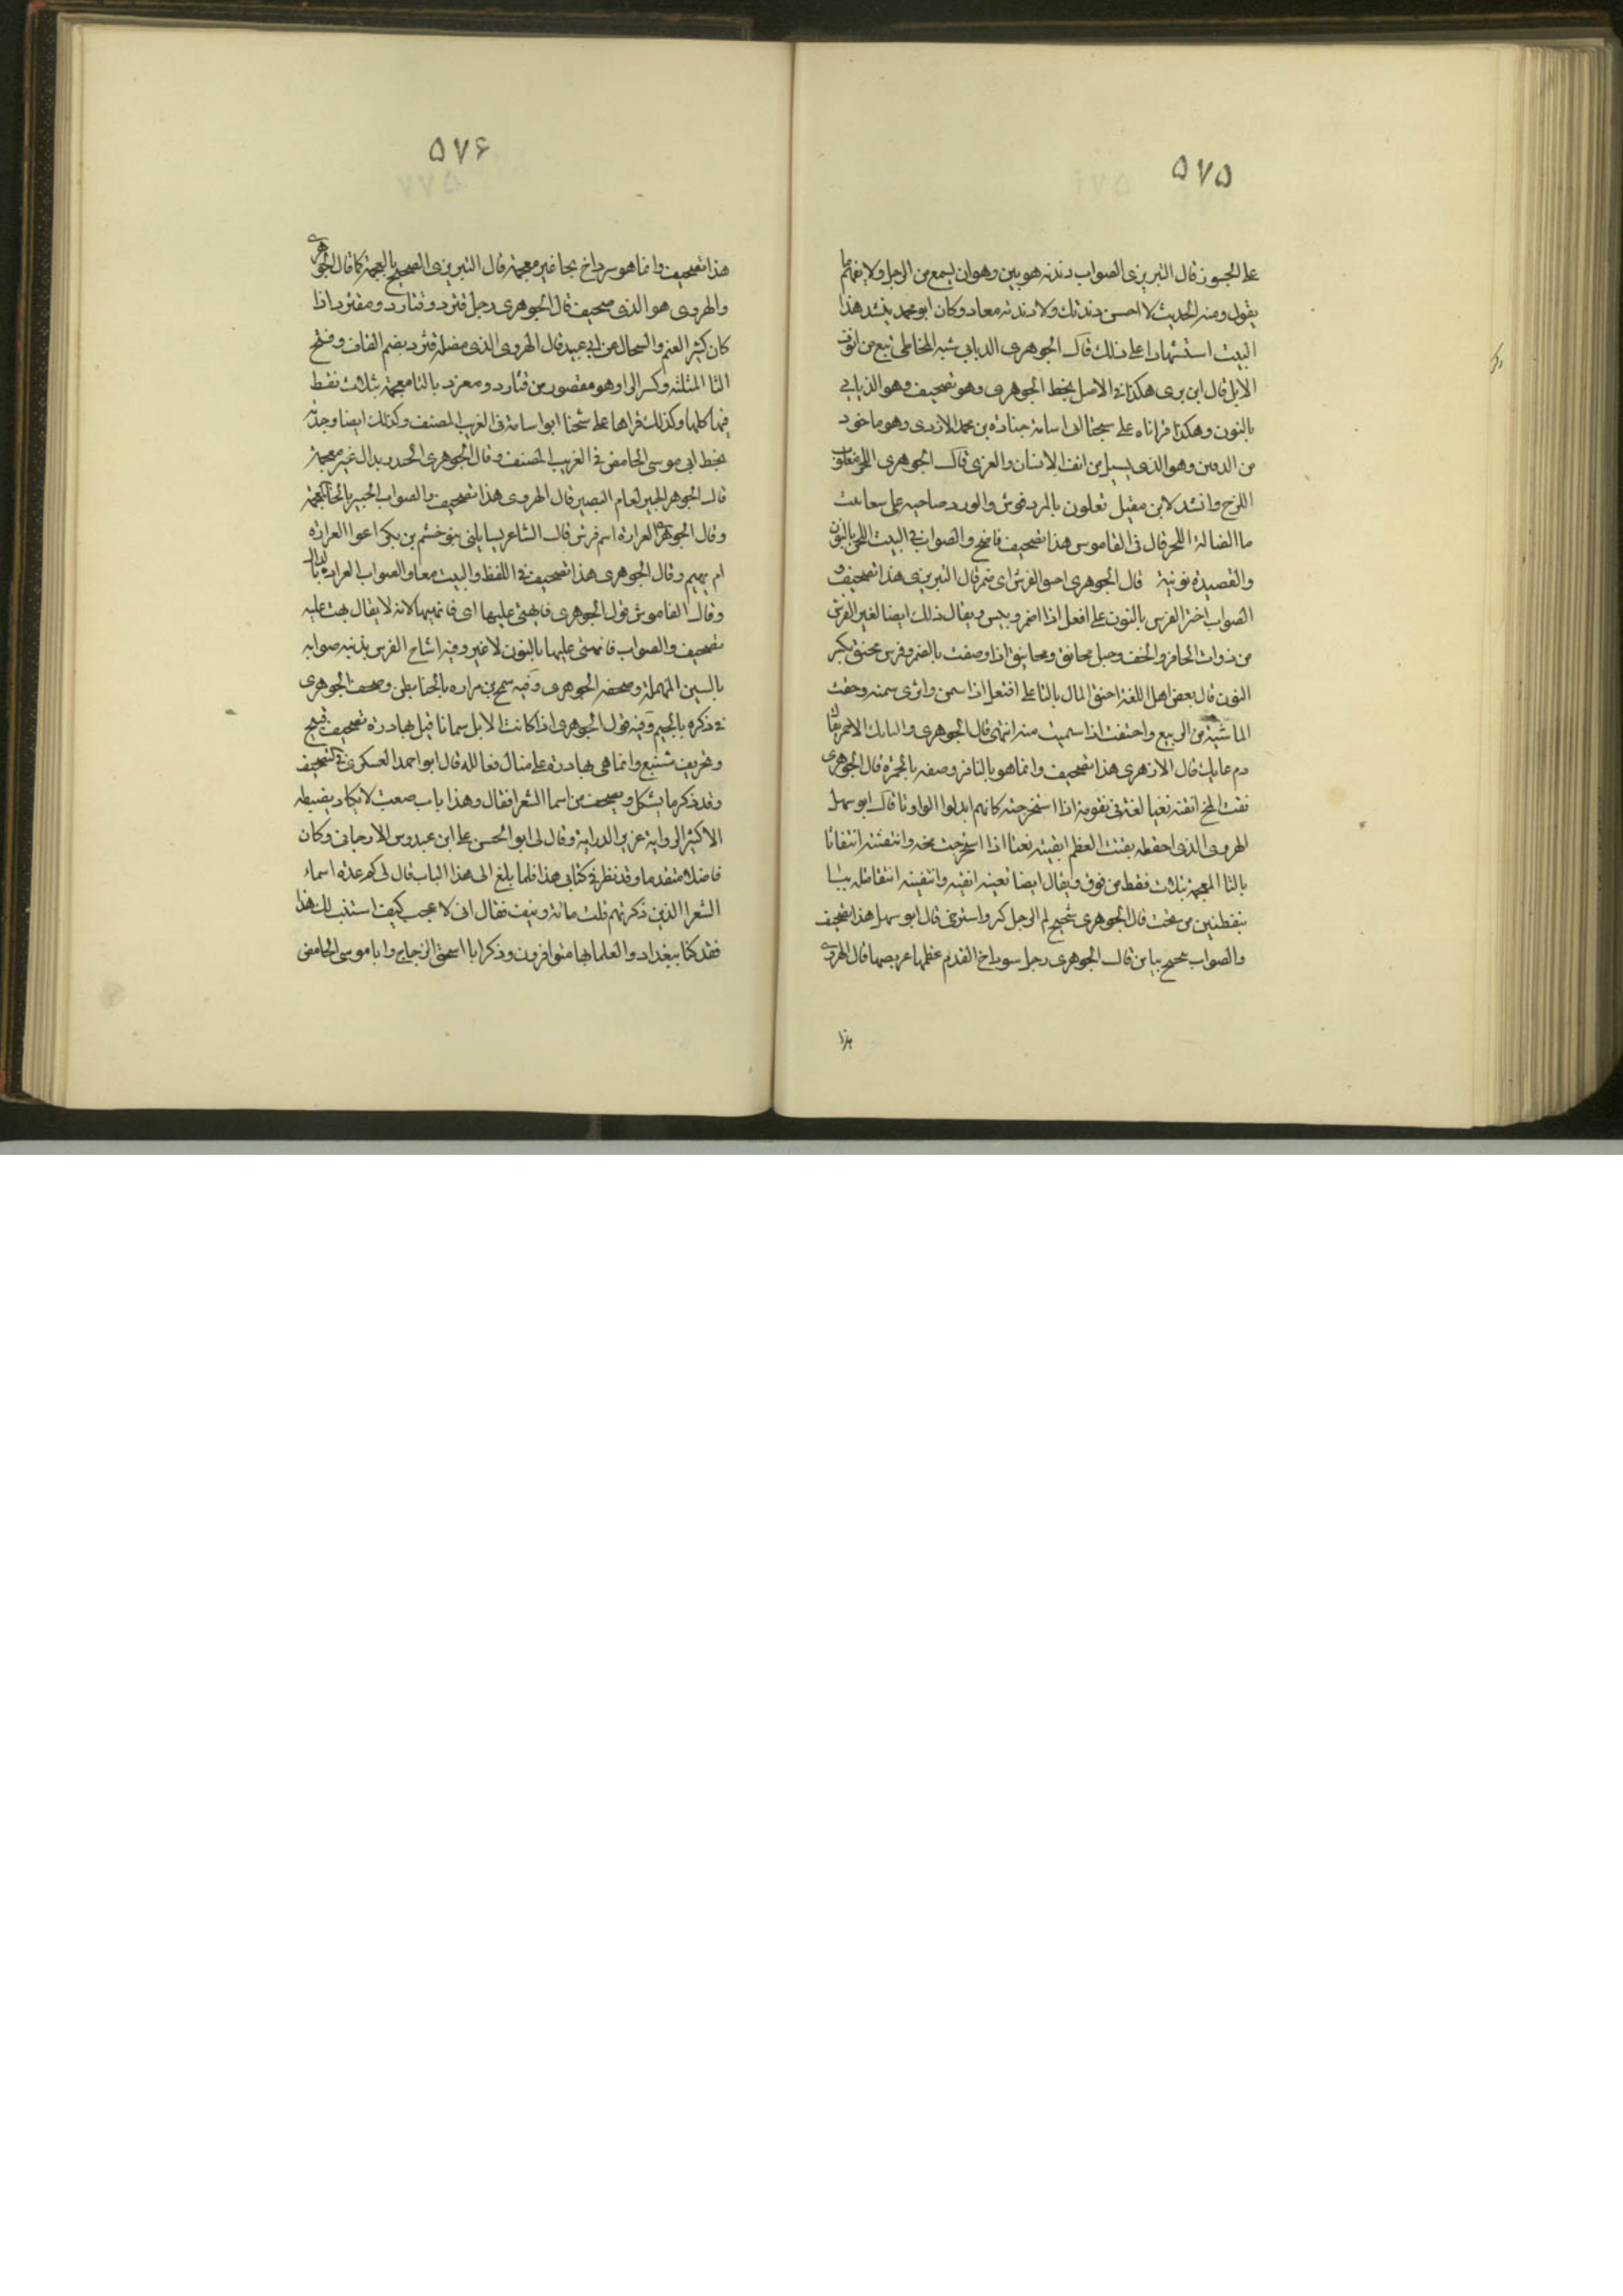 ۵۷۵
على الجسور قال التبريزى الصواب دندنه هو بين وهو ان يسمع من الرجل ولا يفهم ما
يقول ومنه الحديث لا احسن دندنتك ولا دندنه معاد وكان ابو محمد ينشد هذا
البيت استشهادا على ذلك قال الجوهرى الذبابى شبه المخاط يقع من انوف
الابل قال ابن برى هكذا فى الاصل بخط الجوهرى وهو تصحيف وهو الذنابى
بالنون وهكذا قراناه على شيخنا ابى اسامة جنادة بن محمد الازدى وهو ماخوذ
من الذنين وهو الذى يسيل من انف الانسان والعزى قال الجوهرى اللجز مقلوب
اللزج وانشد لابن مقبل تعلون بالمردقوش والورد صاحية على سعابيب
ما الضالة اللجز قال فى القاموس هذا تصحيف فاضح والصواب فى البيت اللجن بالنون
والقصيدة نونية قال الجوهرى احنق الفرس اى ضمر قال التبريزى هذا تصحيف و
الصواب احنق الفرس بالنون على افعل اذا ضمر ويبس ويقال ذلك ايضا لغير الفرس
من ذوات الحافر والخف وحبل محانق ومحانيق اذا وصفت بالضمر وفرس محنق بكسر
النون قال بعض اهل اللغة احتق المال بالتا على افتعل اذا سمن واثرى سمنه وحقت
الماشية من الربيع واحتقت اذا سمنت منه انتهى قال الجوهرى والعاتك الاحمر يقال
دم عاتك قال الازهرى هذا تصحيف وانما هو بالنافر وصفه بالحمرة قال الجوهرى
نقت المخ انقته نقتا لغة فى نقوته اذا استخرجته كانهم ابدلوا الواو تا قال ابو سهل
الهروى الذى احفظه نقثت العظم انقثته نقثا اذا استخرجت مخه وانتقثته انتقاثا
بالثا المعجمة بثلاث نقط من فوق ويقال ايضا نقيته انقيه وانتقيته انتقا مثله بيا
بنقطتين من تحت قال الجوهرى تنجنج لحم الرجل كثر واسترخى قال ابو سهل هذا تصحيف
والصواب تبجبج ببائين قال الجوهرى رجل سرداخ القدم عظيمها عريضها قال الهروى
هذا
۵۷۶
هذا تصحيف وانما هو سرداح بحا غير معجمة قال التبريزى الصحيح بالمعجمة كما قال الجوهرى
والهروى هو الذى صحيف قال الجوهرى رجل قثرد وقثارد ومقثرد اذا
كان كثير الغنم والسخال عن ابى عبيد قال الهروى الذى مضله قثرد بضم القاف وفتح
الثا المثلثه وكسر الرا وهو مقصور من قثارد ومعزد بالثا معجمة بثلاث نقط
فيها كلها وكذلك قراها على شيخنا ابو اسامة فى الغريب المصنف وكذلك ايضا وجدته
بخط ابى موسى الحامض فى الغريب المصنف وقال الجوهرى الحدرد بدال غير معجمة
قال الجوهرى الجبير لغام البعير قال الهروى هذا تصحيف والصواب الخبير بالخا المعجمة
وقال الجوهرى العرادة اسم فرس قال الشاعر يسايلنى بنو خشم بن بكر اعوا العرادة
ام بهيم وقال الجوهرى هذا تصحيف فى اللفظ والبيت معا والصواب العرادة بالدال
وقال القاموس قول الجوهرى فابهتى عليها اى فابهتيها لانه لا يقال بهت عليه
تصحيف والصواب فانهتى عليها بالنون لا غير وفيه اشاح الفرس بذنبه صوابه
بالسين المهملة وصحفه الجوهرى وفيه سمح بن مراره بالحا بطن وصحف الجوهرى
فى ذكره بالجيم وفيه قول الجوهرى اذا كانت الابل سمانا قيل بهادرة تصحيف قبيح
وتحريف شنيع وانما هى بهادرة على مثال فعاللة قال ابو احمد العسكرى فى كتاب التصحيف
وقد ذكر ما يشكل ويصحف من اسما الشعرا فقال وهذا باب صعب لا يكاد يضبطه
الا كثير الرواية عزيز الدراية وقال لى ابو الحسن على ابن عبدوس الارجانى وكان
فاضلا متقدما وقد نظر فى كتابى هذا فلما بلغ الى هذا الباب قال لى كم عدة اسماء
الشعرا الذين ذكرتهم قلت مائة ونيف فقال انى لاعجب كيف استتب لك هذا
فقد كنا ببغداد والعلما بها متوافرون وذكر ابا اسحق الزجاج وابا موسى الحامض